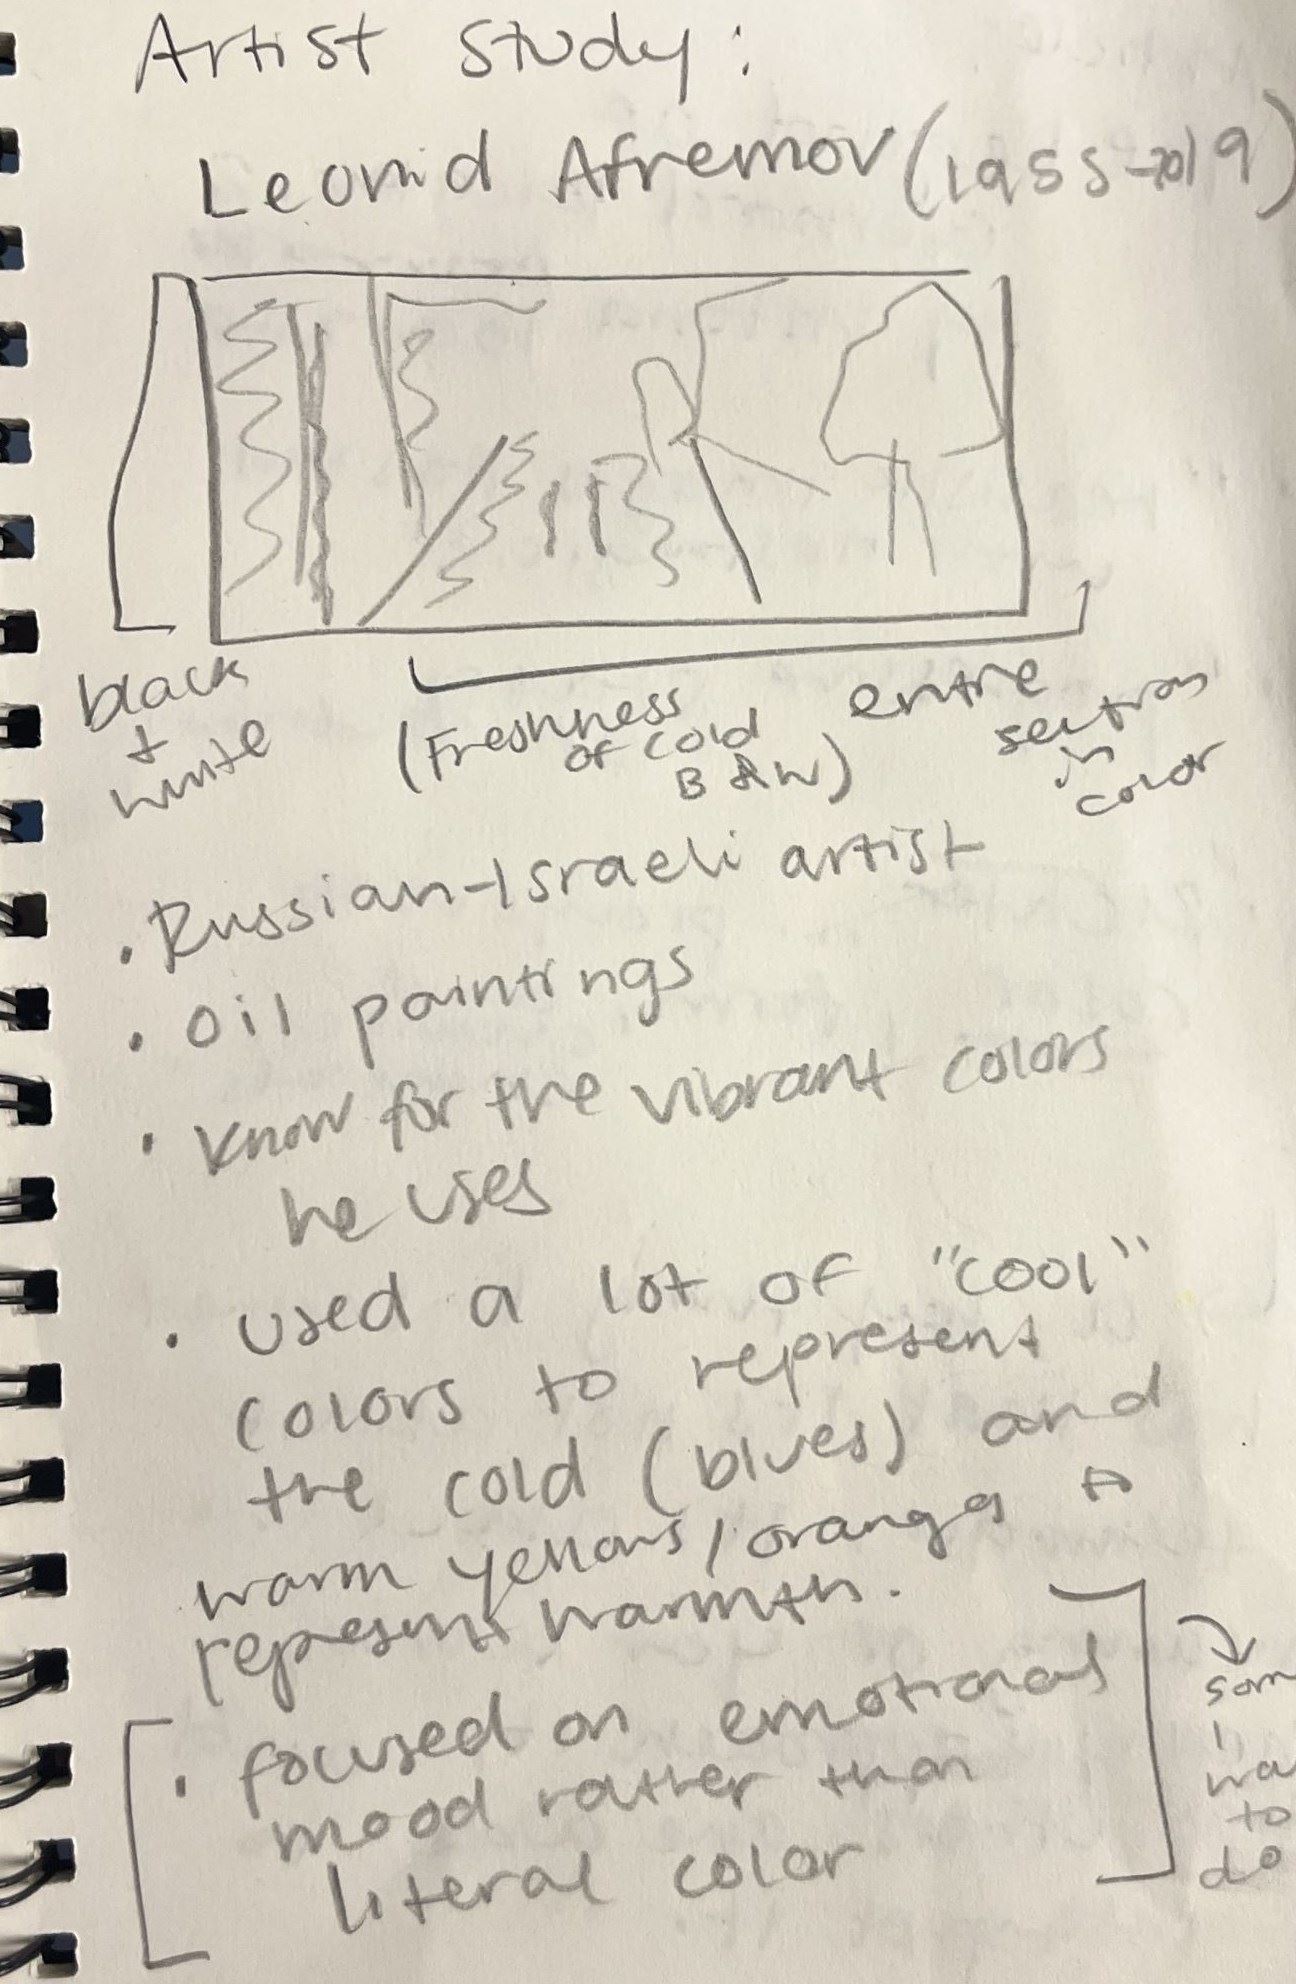 Artist Study:
Leonid Afremov (1955-2019)
black
+
white
(Freshness
of Cold
B & W)
entire
section
in
color
• Russian-Israeli artist
• Oil paintings
• Know for the vibrant colors
he uses
• used a lot of "cool"
colors to represent
the cold (blues) and
warm yellows/oranges to
represent warmth.
• focused on emotional
mood rather than
literal color
som
I
wa
to
do